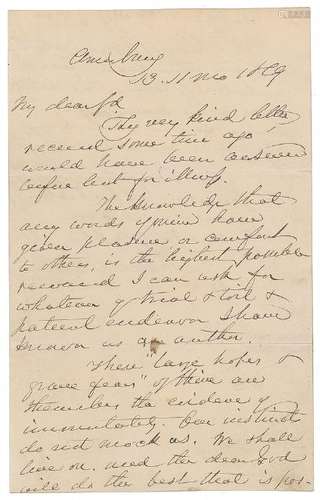 Amesbury
13. 11 mo 1869
My dear fd
Thy very kind letter
received some time ago,
would have been answered
before but for illness.
The knowledge that
any words of mine have
given pleasure or comfort
to others, is the highest possible
reward I can ask for
whatever of trial & toil &
patient endeavor I have
known as an author.
These "large hopes &
grave fears" of thine are
themselves the evidence of
immortality. Our instincts
do not mock us. We shall
live on, and the dear God
will do the best that is pos-